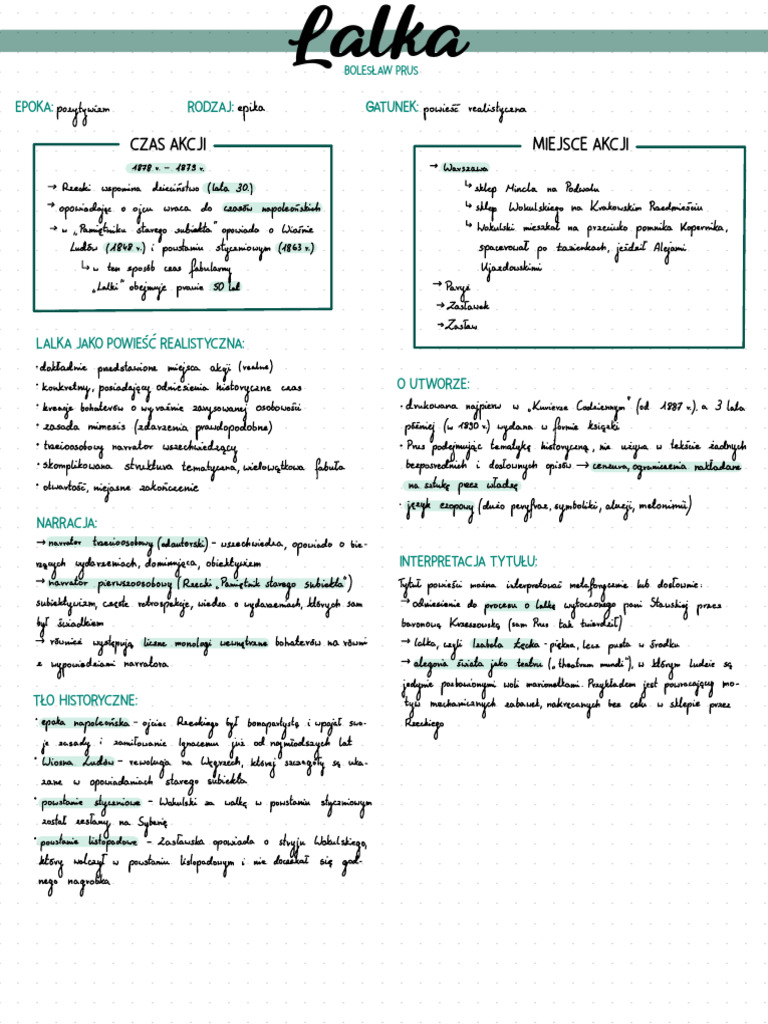 Lalka
BOLESŁAW PRUS
EPOKA: pozytywizm
RODZAJ: epika
GATUNEK: powieść realistyczna
CZAS AKCJI
1878 r. – 1879 r.
→ Rzecki wspomina dzieciństwo (lata 30.)
→ opowiadając o ojcu wraca do czasów napoleońskich
→ w „Pamiętniku starego subiekta" opowiada o Wiośnie
Ludów (1848 r.) i powstaniu styczniowym (1863 r.)
↳ w ten sposób czas fabularny
„Lalki" obejmuje prawie 50 lat
MIEJSCE AKCJI
→ Warszawa
↳ sklep Mincla na Podwalu
↳ sklep Wokulskiego na Krakowskim Przedmieściu
↳ Wokulski mieszkał na przeciwko pomnika Kopernika,
spacerował po Łazienkach, jeździł Alejami
Ujazdowskimi
→ Paryż
→ Zasławek
→ Zasław
LALKA JAKO POWIEŚĆ REALISTYCZNA:
· dokładnie przedstawione miejsca akcji (realne)
· konkretny, posiadający odniesienia historyczne czas
· kreacje bohaterów o wyraźnie zarysowanej osobowości
· zasada mimesis (zdarzenia prawdopodobne)
· trzecioosobowy narrator wszechwiedzący
· skomplikowana struktura tematyczna, wielowątkowa fabuła
· otwartość, niejasne zakończenie
NARRACJA:
→ narrator trzecioosobowy (odautorski) – wszechwiedza, opowiada o bie-
żących wydarzeniach, dominująca, obiektywizm
→ narrator pierwszoosobowy (Rzecki „Pamiętnik starego subiekta")
subiektywizm, częste retrospekcje, wiedza o wydarzeniach, których sam
był świadkiem
→ również występują liczne monologi wewnętrzne bohaterów na równi
z wypowiedziami narratora.
TŁO HISTORYCZNE:
· epoka napoleońska – ojciec Rzeckiego był bonapartystą i wpajał swo-
je zasady i zamiłowanie Ignacemu już od najmłodszych lat
· Wiosna Ludów – rewolucja na Węgrzech, której szczegóły są uka-
zane w opowiadaniach starego subiekta
· powstanie styczniowe – Wokulski za walkę w powstaniu styczniowym
został zesłany na Syberię
· powstanie listopadowe – Zasławska opowiada o stryju Wokulskiego,
który walczył w powstaniu listopadowym i nie doczekał się god-
nego nagrobka
O UTWORZE:
· drukowana najpierw w „Kurierze Codziennym" (od 1887 r.), a 3 lata
później (w 1890 r.) wydana w formie książki
· Prus podejmując tematykę historyczną, nie używa w tekście żadnych
bezpośrednich i dosłownych opisów → cenzura, ograniczenia nakładane
na sztukę przez władzę
· język ezopowy (dużo peryfraz, symboliki, aluzji, metonimii)
INTERPRETACJA TYTUŁU:
Tytuł powieści można interpretować metaforycznie lub dosłownie:
→ odniesienie do procesu o lalkę wytoczonego pani Stawskiej przez
baronową Krzeszowską (sam Prus tak twierdził)
→ lalka, czyli Izabela Łęcka – piękna, lecz pusta w środku
→ alegoria świata jako teatru („theatrum mundi"), w którym ludzie są
jedynie pozbawionymi woli marionetkami. Przykładem jest powracający mo-
tyw mechanicznych zabawek, nakręcanych bez celu w sklepie przez
Rzeckiego